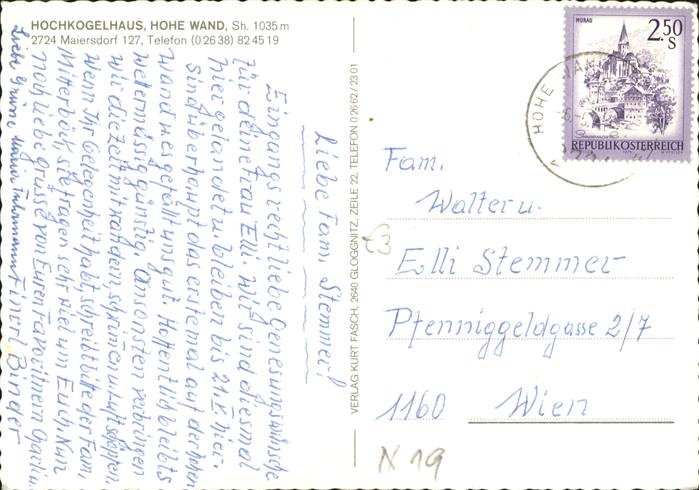 HOCHKOGELHAUS, HOHE WAND, Sh. 1035 m
2724 Maiersdorf 127, Telefon (0 26 38) 82 45 19
Liebe Fam. Stemmer!
Eingangs recht liebe Genesungswünsche
für deine Frau Elli. Wir sind diesmal
hier gelandet u. bleiben bis 21.V. hier.
Sind überhaupt das erstemal auf der hohen
Wand u. es gefällt uns gut. Hoffentlich bleibts
wettermässig günstig. Ansonsten verbringen
wir die Zeit mit radeln, u. Luft schöppen.
Wenn Ihr Gelegenheit habt, schreibt bitte der Fam.
Mitterböck, sie fragen sehr viel um Euch. Nun
noch liebe Grüsse von Euren Favoritnern
Liebe Binder
VERLAG KURT FASCH, 2640 GLOGGNITZ, ZEILE 22, TELEFON 0 26 62 / 23 01
MURAU
2.50
S
REPUBLIK ÖSTERREICH
HOHE WAND
Fam.
Walter u.
Elli Stemmer
Pfenniggeldgasse 2/7
1160 Wien
N 19